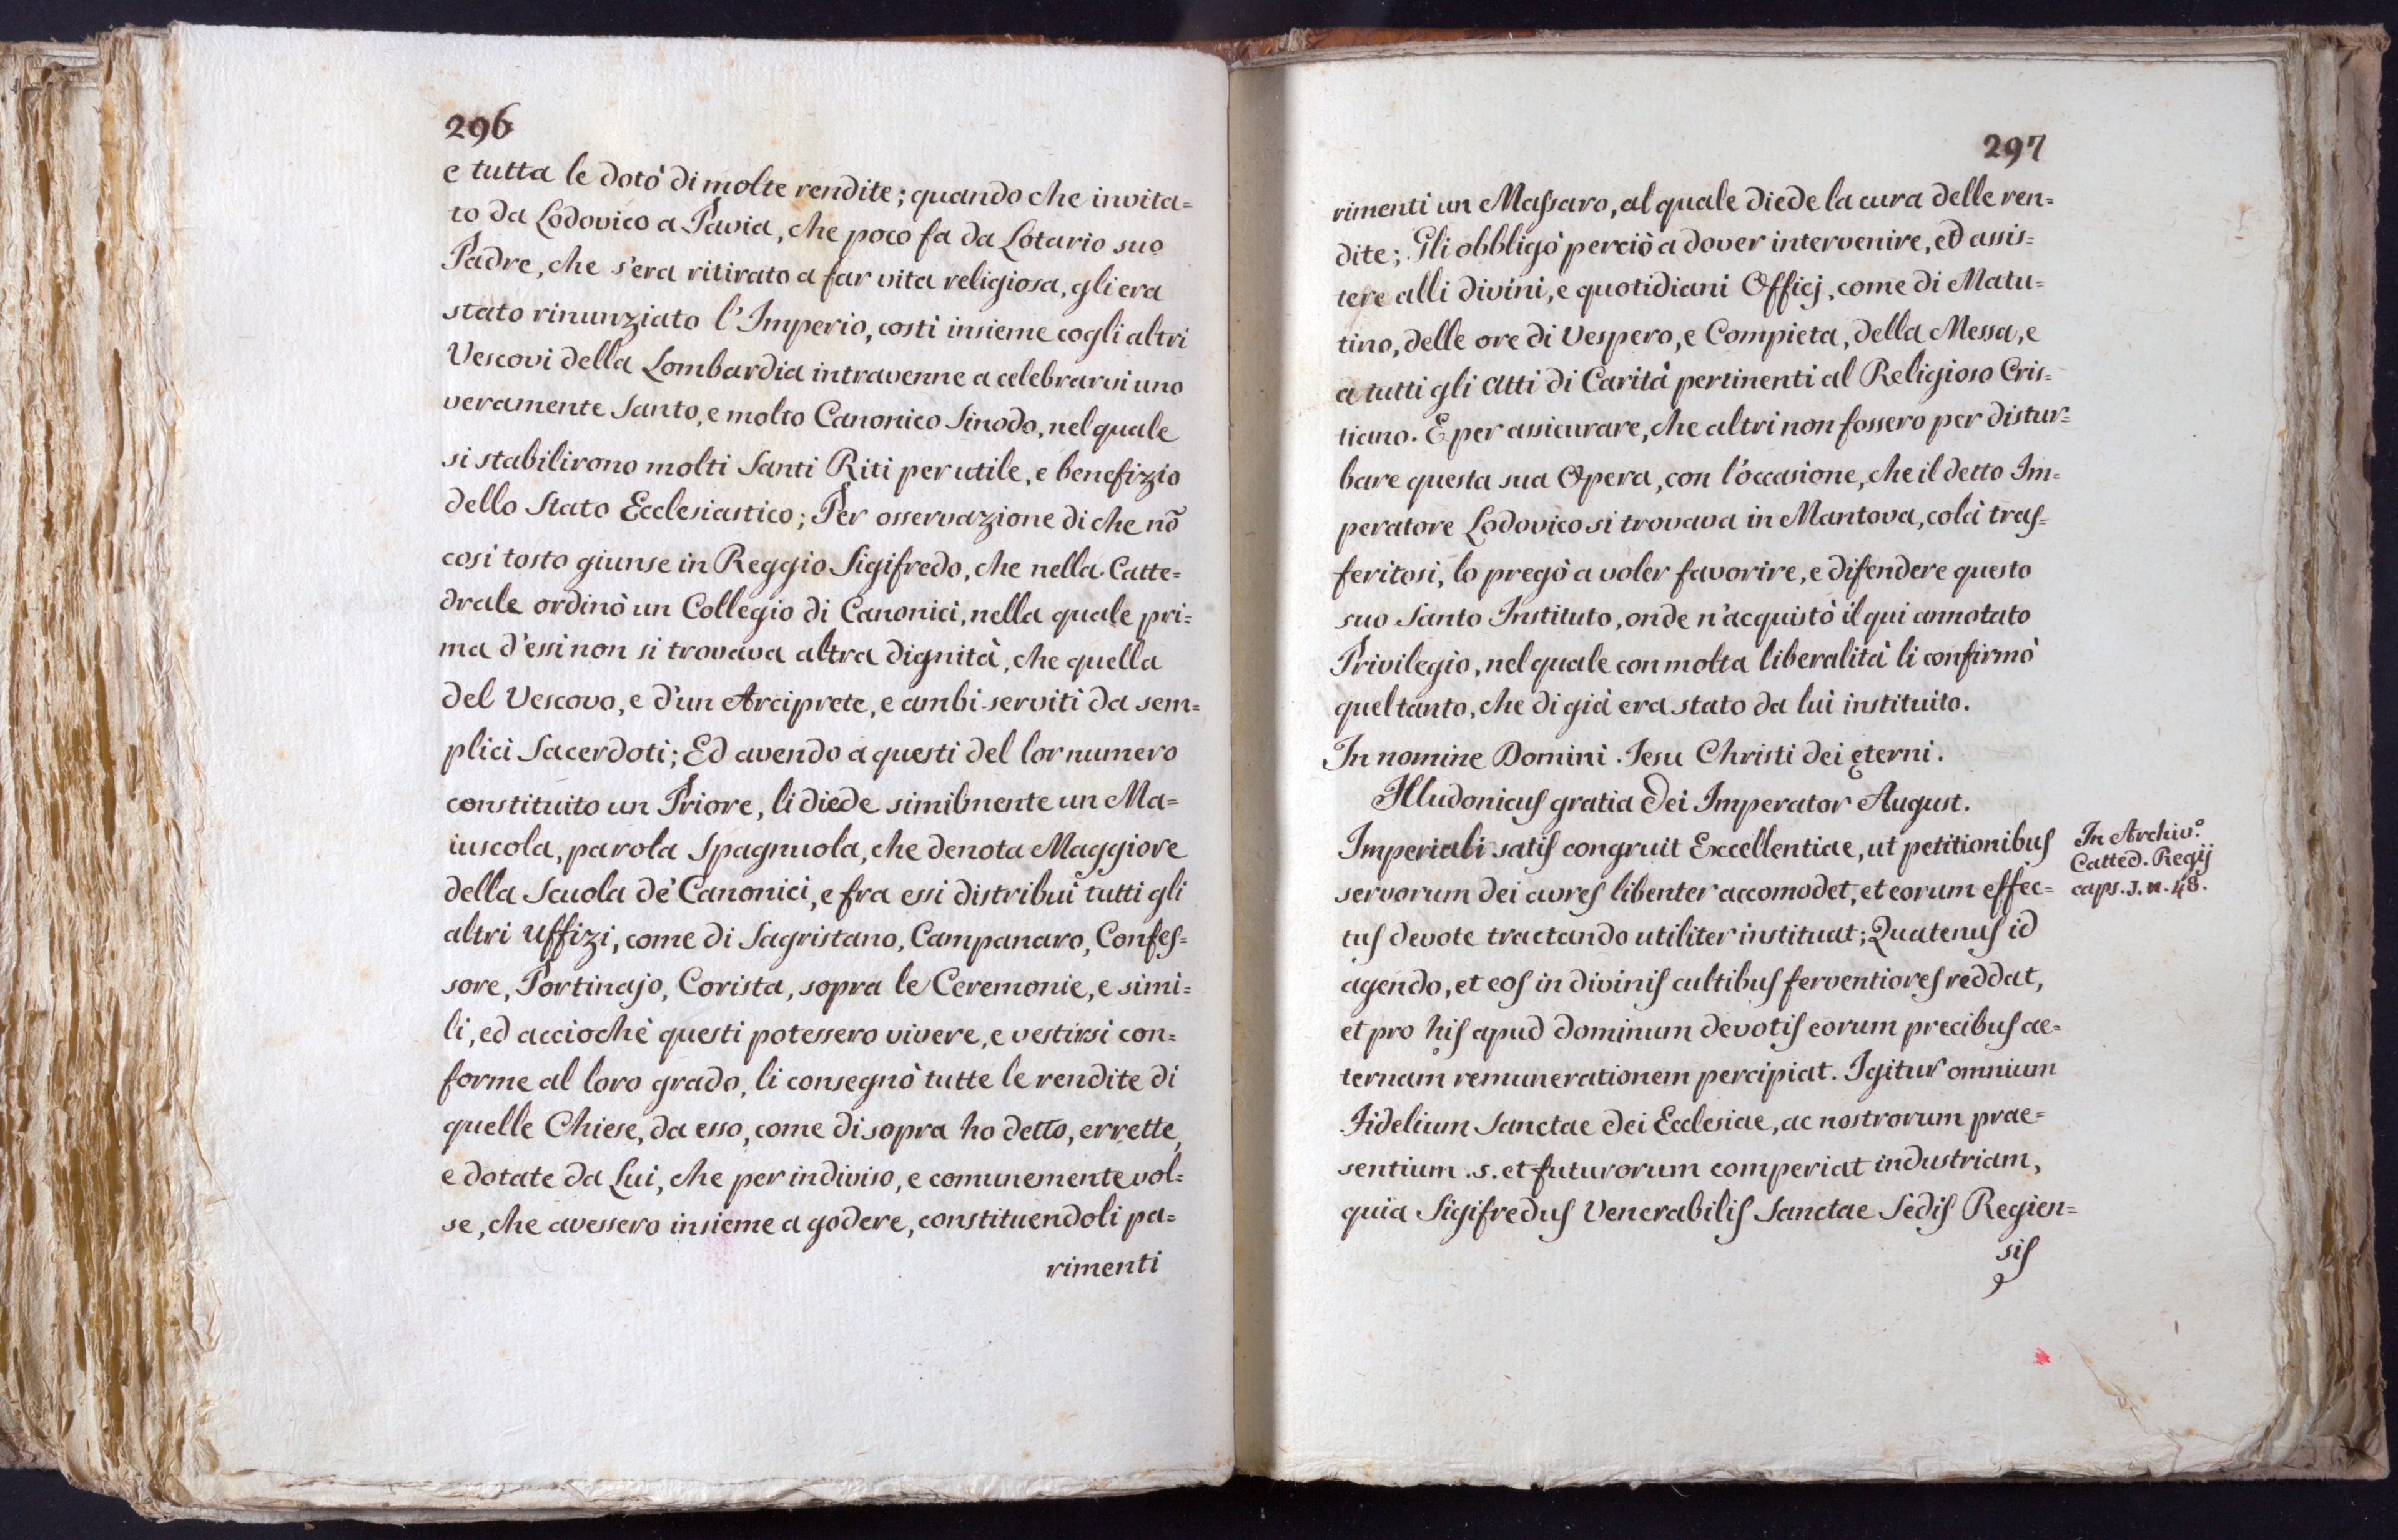 296
e tutta le dotò di molte rendite; quando che invita=
to da Lodovico a Pavia, che poco fa da Lotario suo
Padre, che s'era ritirato a far vita religiosa, gli era
stato rinunziato l'Imperio, costì insieme cogli altri
Vescovi della Lombardia intravenne a celebrarvi uno
veramente Santo, e molto Canonico Sinodo, nel quale
si stabilirono molti Santi Riti per utile, e benefizio
dello Stato Ecclesiastico; Per osservazione di che nõ
così tosto giunse in Reggio Sigifredo, che nella Catte=
drale ordinò un Collegio di Canonici, nella quale pri=
ma d'essi non si trovava altra dignità, che quella
del Vescovo, e d'un Arciprete, e ambi serviti da sem=
plici Sacerdoti; Ed avendo a questi del lor numero
constituito un Priore, li diede similmente un Ma=
iuscola, parola Spagnuola, che denota Maggiore
della Scuola de' Canonici, e fra essi distribuì tutti gli
altri Uffizi, come di Sagristano, Campanaro, Confeſ=
sore, Portinajo, Corista, sopra le Ceremonie, e simi=
li, ed acciochè questi potessero vivere, e vestirsi con=
forme al loro grado, li consegnò tutte le rendite di
quelle Chiese, da esso, come di sopra ho detto, errette,
e dotate da Lui, che per indiviso, e comunemente vol=
se, che avessero insieme a godere, constituendoli pa=
rimenti
297
rimenti un Maſsaro, al quale diede la cura delle ren=
dite; Gli obbligò perciò a dover intervenire, ed assis=
tere alli divini, e quotidiani Officj, come di Matu=
tino, delle ore di Vespero, e Compieta, della Messa, e
a tutti gli Atti di Carità pertinenti al Religioso Cris=
tiano. E per assicurare, che altri non fossero per distur=
bare questa sua Opera, con l'occasione, che il detto Im=
peratore Lodovico si trovava in Mantova, colà traſ=
feritosi, lo pregò a voler favorire, e difendere questo
suo Santo Instituto, onde n'acquistò il qui annotato
Privilegio, nel quale con molta liberalità li confirmò
quel tanto, che di già era stato da lui instituito.
In nomine Domini Jesu Christi dei ęterni.
Hludonicuſ gratia Dei Imperator August.
Imperiali satiſ congruit Excellentiae, ut petitionibuſ
servorum dei aureſ libenter accomodet, et eorum effec=
tuſ devote tractando utiliter instituat; Quatenuſ id
agendo, et eoſ in diviniſ cultibuſ ferventioreſ reddat,
et pro hiſ apud dominum devotiſ eorum precibuſ ae=
ternam remunerationem percipiat. Igitur omnium
Fidelium Sanctae Dei Ecclesiae, ac nostrorum prae=
sentium .s. et futurorum comperiat industriam,
quia Sigifreduſ Venerabiliſ Sanctae Sediſ Regien=
siſ
In Archiv.º
Catted. Regij
caps. J. n. 48.